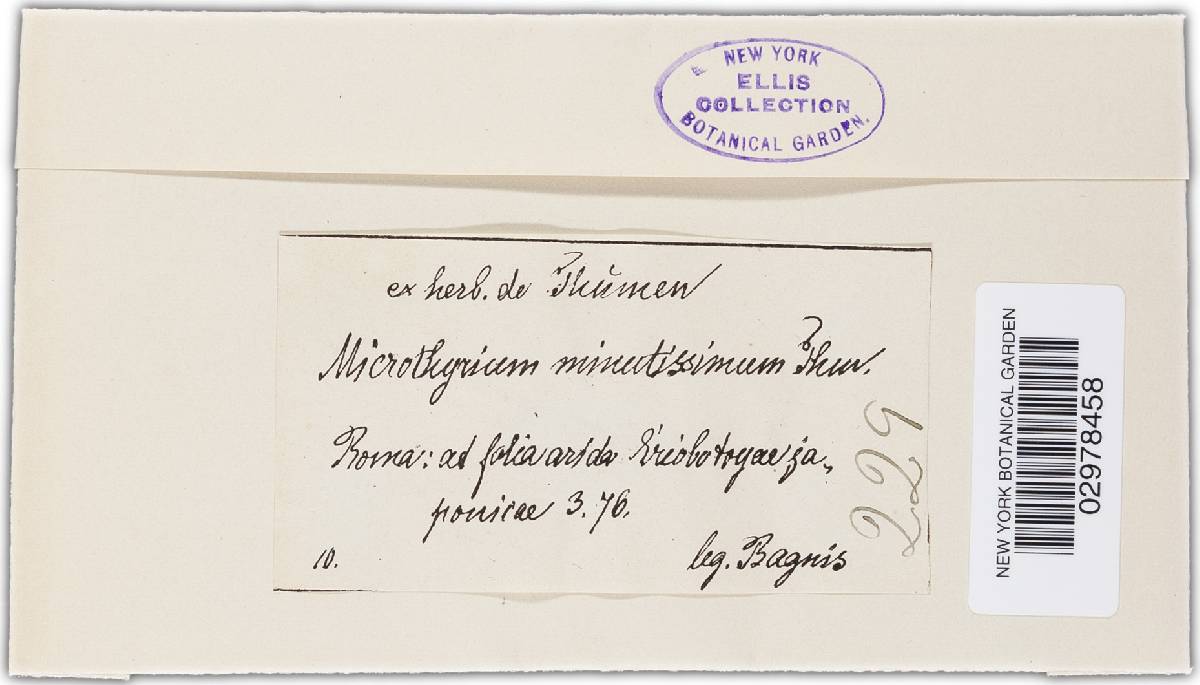 NEW YORK
ELLIS
COLLECTION
BOTANICAL GARDEN.
ex herb. de Thümen
Microthyrium minutissimum Thüm.
Roma: ad folia arida Eriobotryae ja-
ponicae 3.76.
10.
leg. Bagnis
229
NEW YORK BOTANICAL GARDEN
02978458